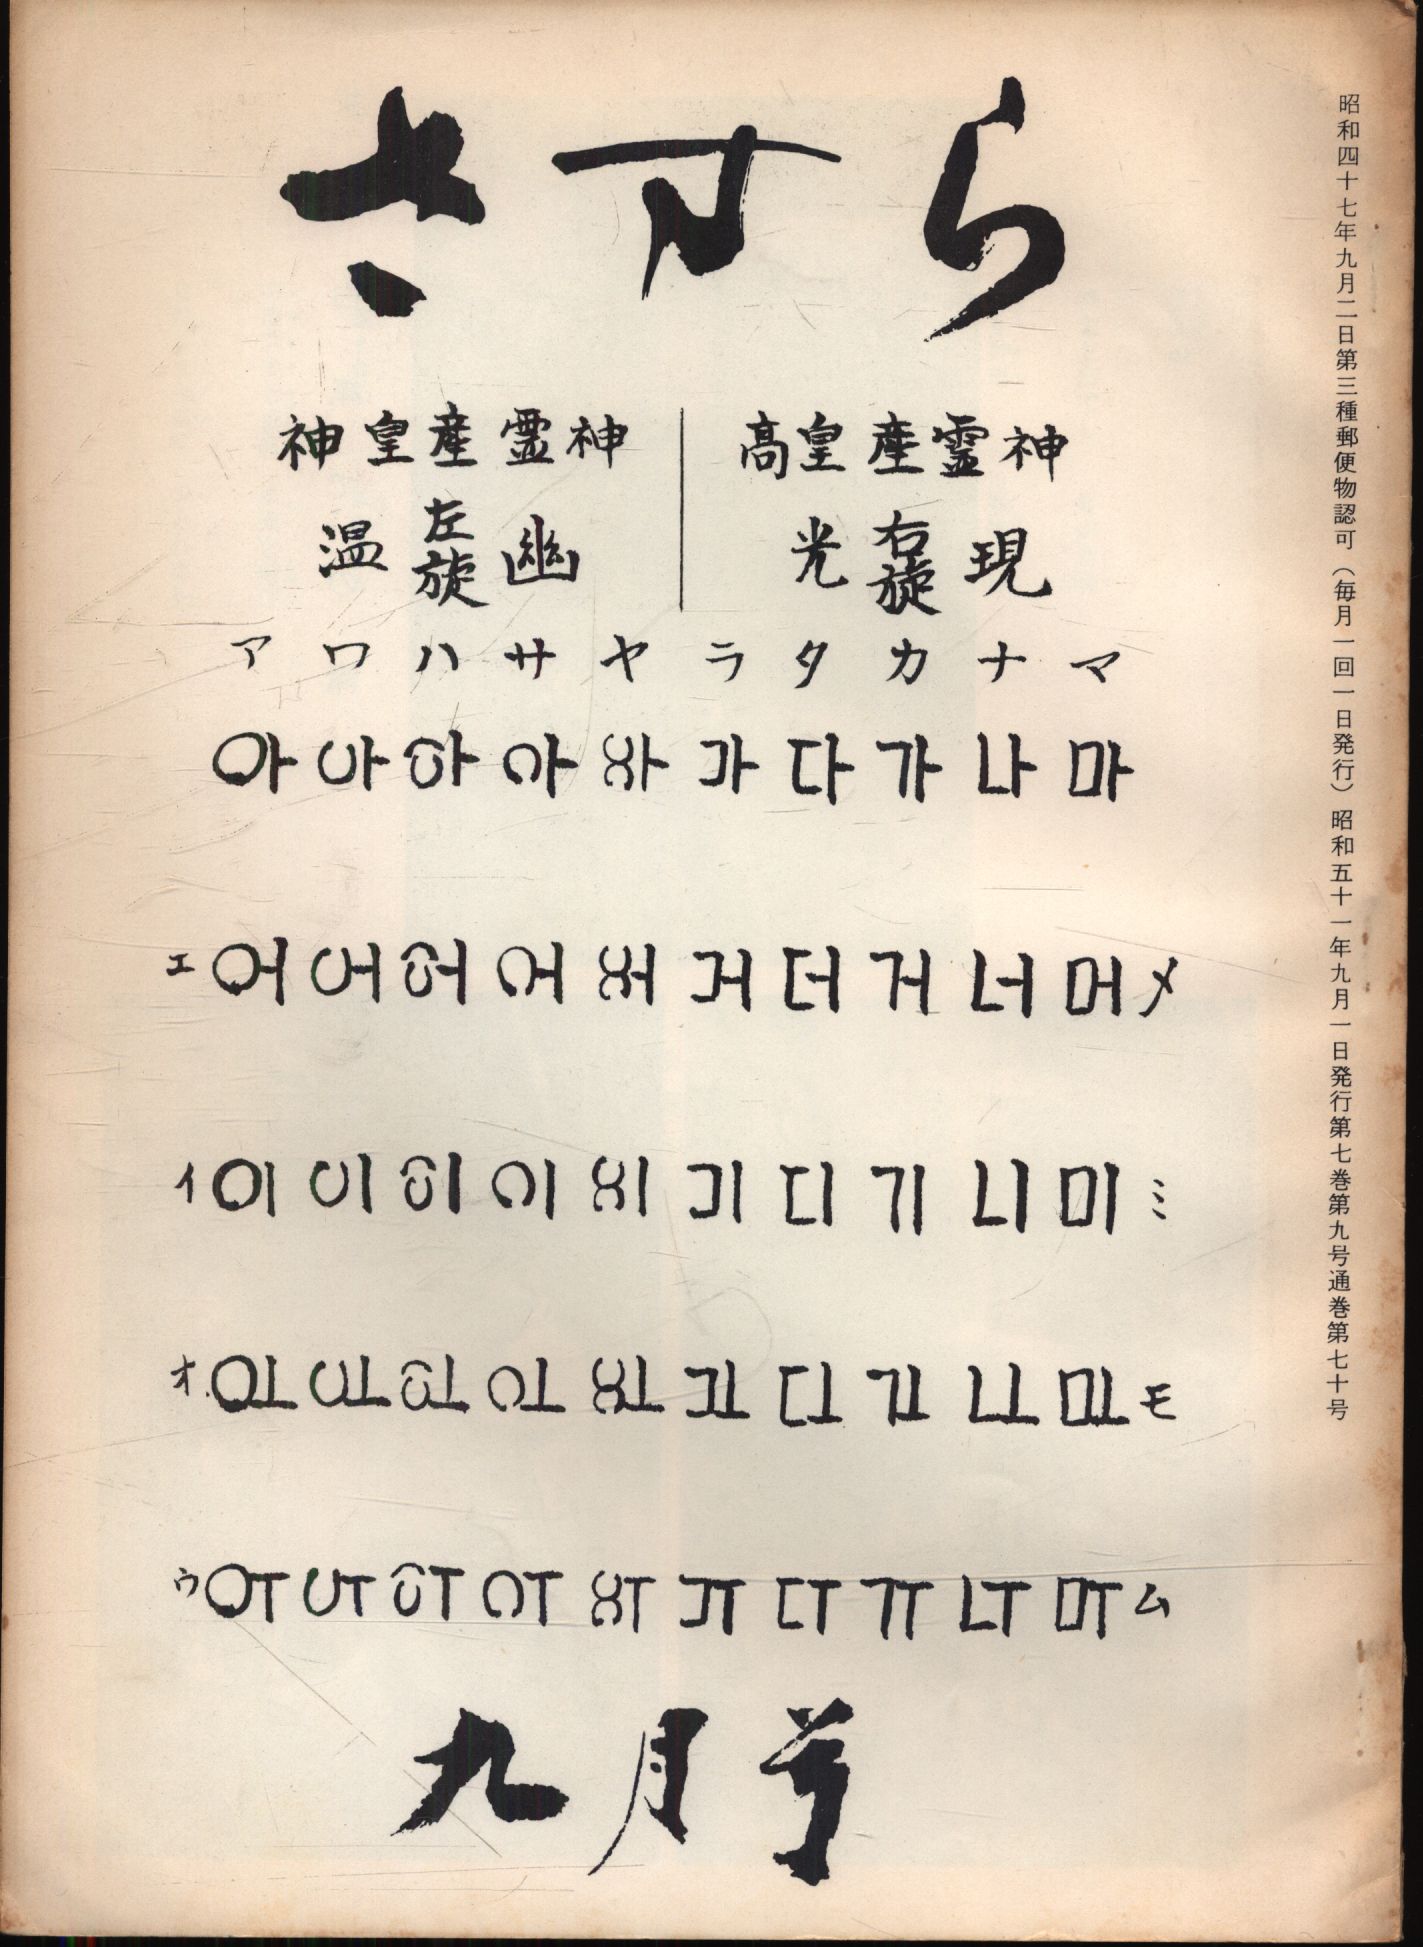 さすら
神皇産霊神 高皇産霊神
温 左旋 幽 光 右旋 現
アワハサヤラタカナマ
아 하 다 가 나 마
エ 어 허 더 거 너 머 メ
イ 이 히 디 기 니 미 ミ
オ 오 호 도 고 노 모 モ
ウ 우 후 두 구 누 무 ム
九月号
昭和四十七年九月二日第三種郵便物認可（毎月一回一日発行）昭和五十一年九月一日発行第七巻第九号通巻第七十号